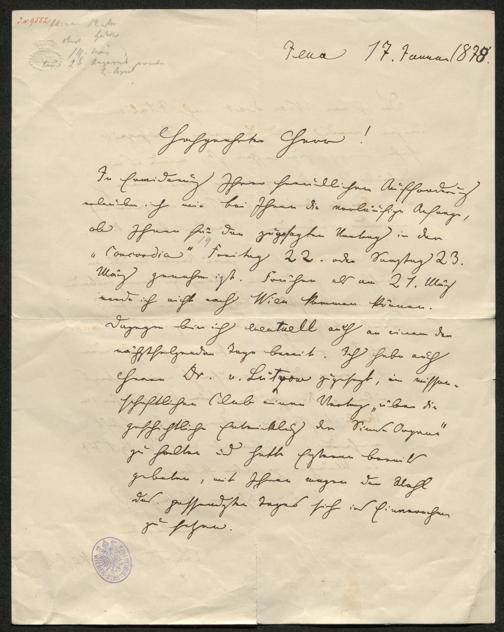 I.N. 9552
Jena 17. Januar 1878.
Hochgeehrter Herr!
In Erwiderung Ihrer freundlichen Aufforderung
erlaube ich mir bei Ihnen die vorläufige Anfrage,
ob Ihnen für den zugesagten Vortrag in der
„Concordia" Freitag 22. oder Samstag 23.
März genehm ist. Früher als am 21. März
werde ich nicht nach Wien kommen können.
Dagegen bin ich eventuell auch an einem der
nächstfolgenden Tage bereit. Ich habe auch
Herrn Dr. v. Lützow zugesagt, im wissen-
schaftlichen Club einen Vortrag „über die
geschichtliche Entwicklung der Sinnes Organe"
zu halten und hatte Ersteren bereits
gebeten, mit Ihnen wegen der Wahl
des passendsten Tages sich ins Einvernehmen
zu setzen.